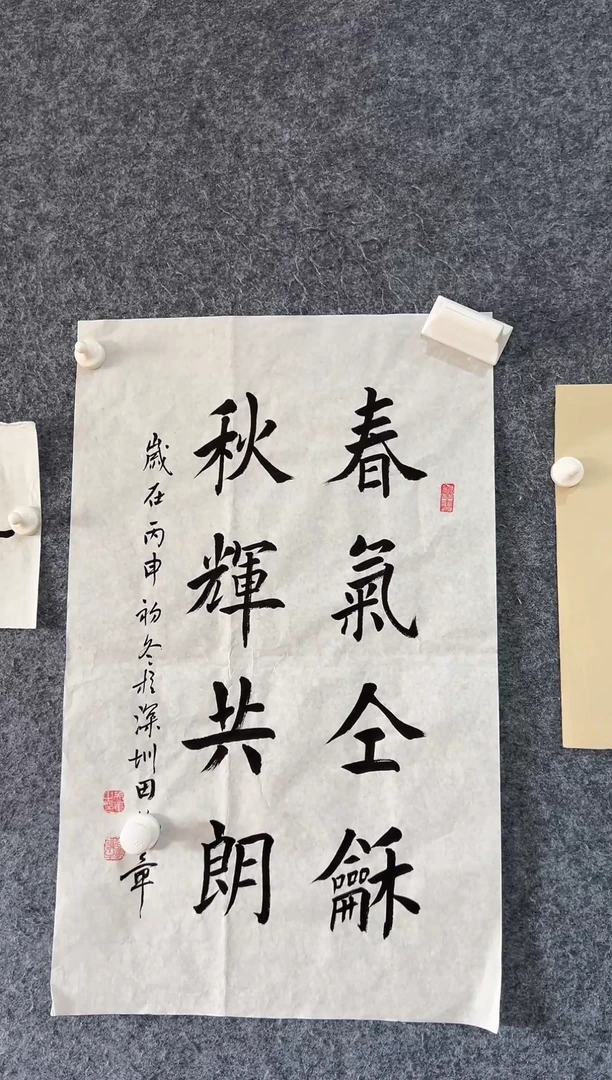 春氣仝龢
秋輝共朗
歲在丙申初冬於深圳田 章